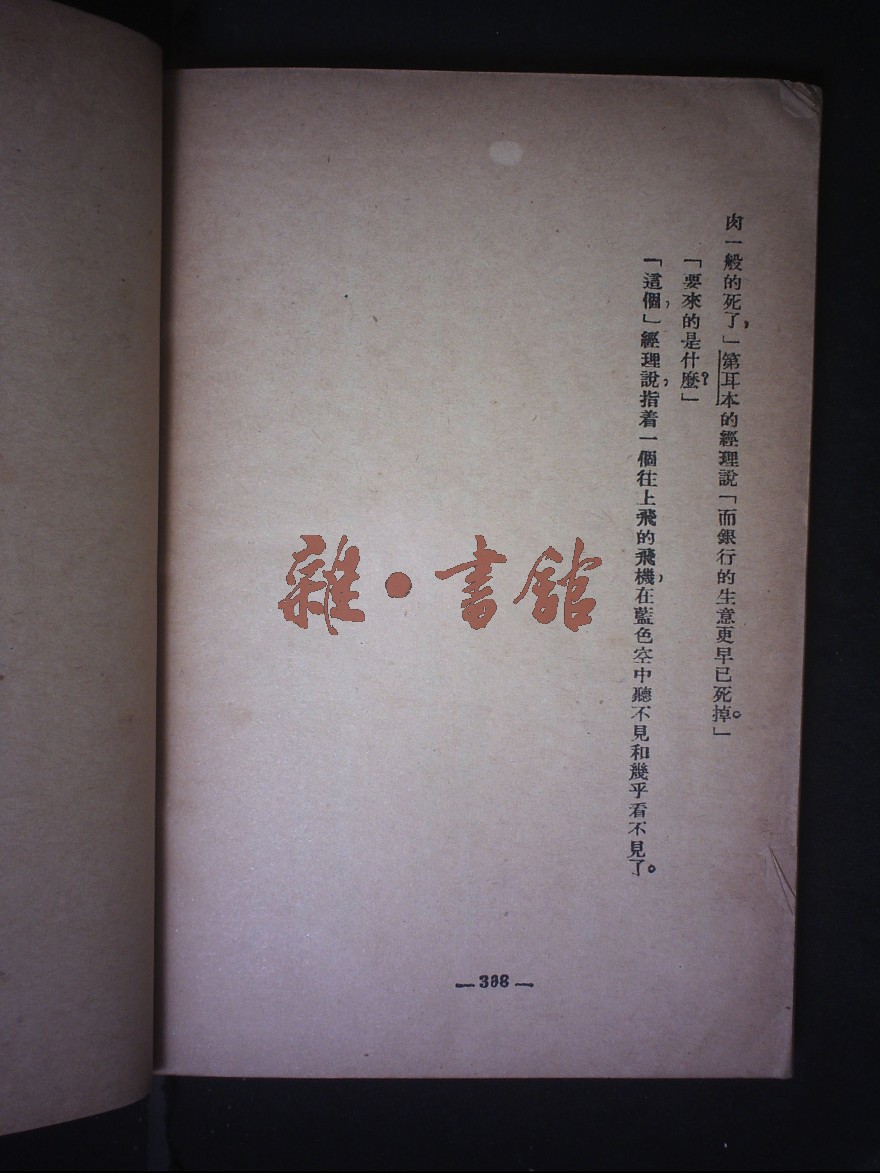 肉一般的死了，」第耳本的經理說「而銀行的生意更早已死掉。」
「要來的是什麼？」
「這個，」經理說，指着一個往上飛的飛機，在藍色空中聽不見和幾乎看不見了。
雜·書館
— 398 —